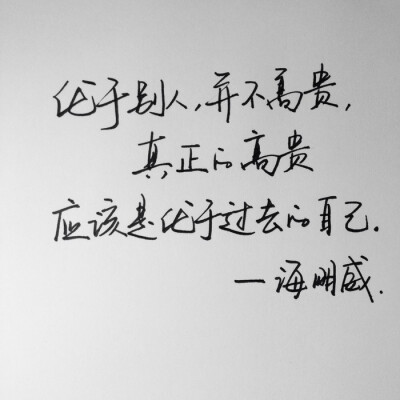 优于别人,并不高贵,
真正的高贵
应该是优于过去的自己.
一海明威.